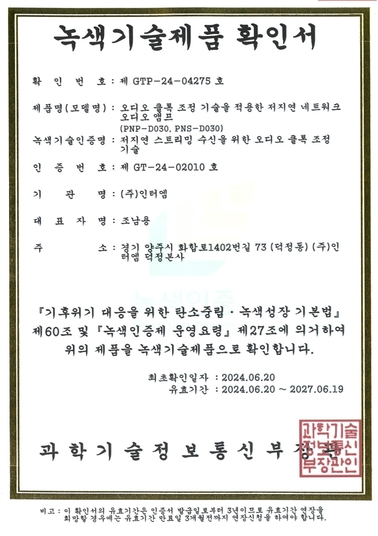 녹색기술제품 확인서
확 인 번 호 : 제 GTP-24-04275 호
제품명(모델명) : 오디오 클록 조정 기술을 적용한 저지연 네트워크
오디오 앰프
(PNP-D030, PNS-D030)
녹색기술인증명 : 저지연 스트리밍 수신을 위한 오디오 클록 조정
기술
인 증 번 호 : 제 GT-24-02010 호
기 관 명 : (주)인터엠
대 표 자 명 : 조남용
주 소 : 경기 양주시 화합로1402번길 73 (덕정동) (주)인
터엠 덕정본사
녹색인증
『기후위기 대응을 위한 탄소중립·녹색성장 기본법』
제60조 및 『녹색인증제 운영요령』 제27조에 의거하여
위의 제품을 녹색기술제품으로 확인합니다.
최초확인일자 : 2024.06.20
유효기간 : 2024.06.20 ~ 2027.06.19
과학기술정보통신부장관
과학기술
정보통신
부장관인
비고 : 이 확인서의 유효기간은 인증서 발급일로부터 3년이므로 유효기간 연장을
희망할 경우에는 유효기간 만료일 3개월전까지 연장신청을 하여야 합니다.